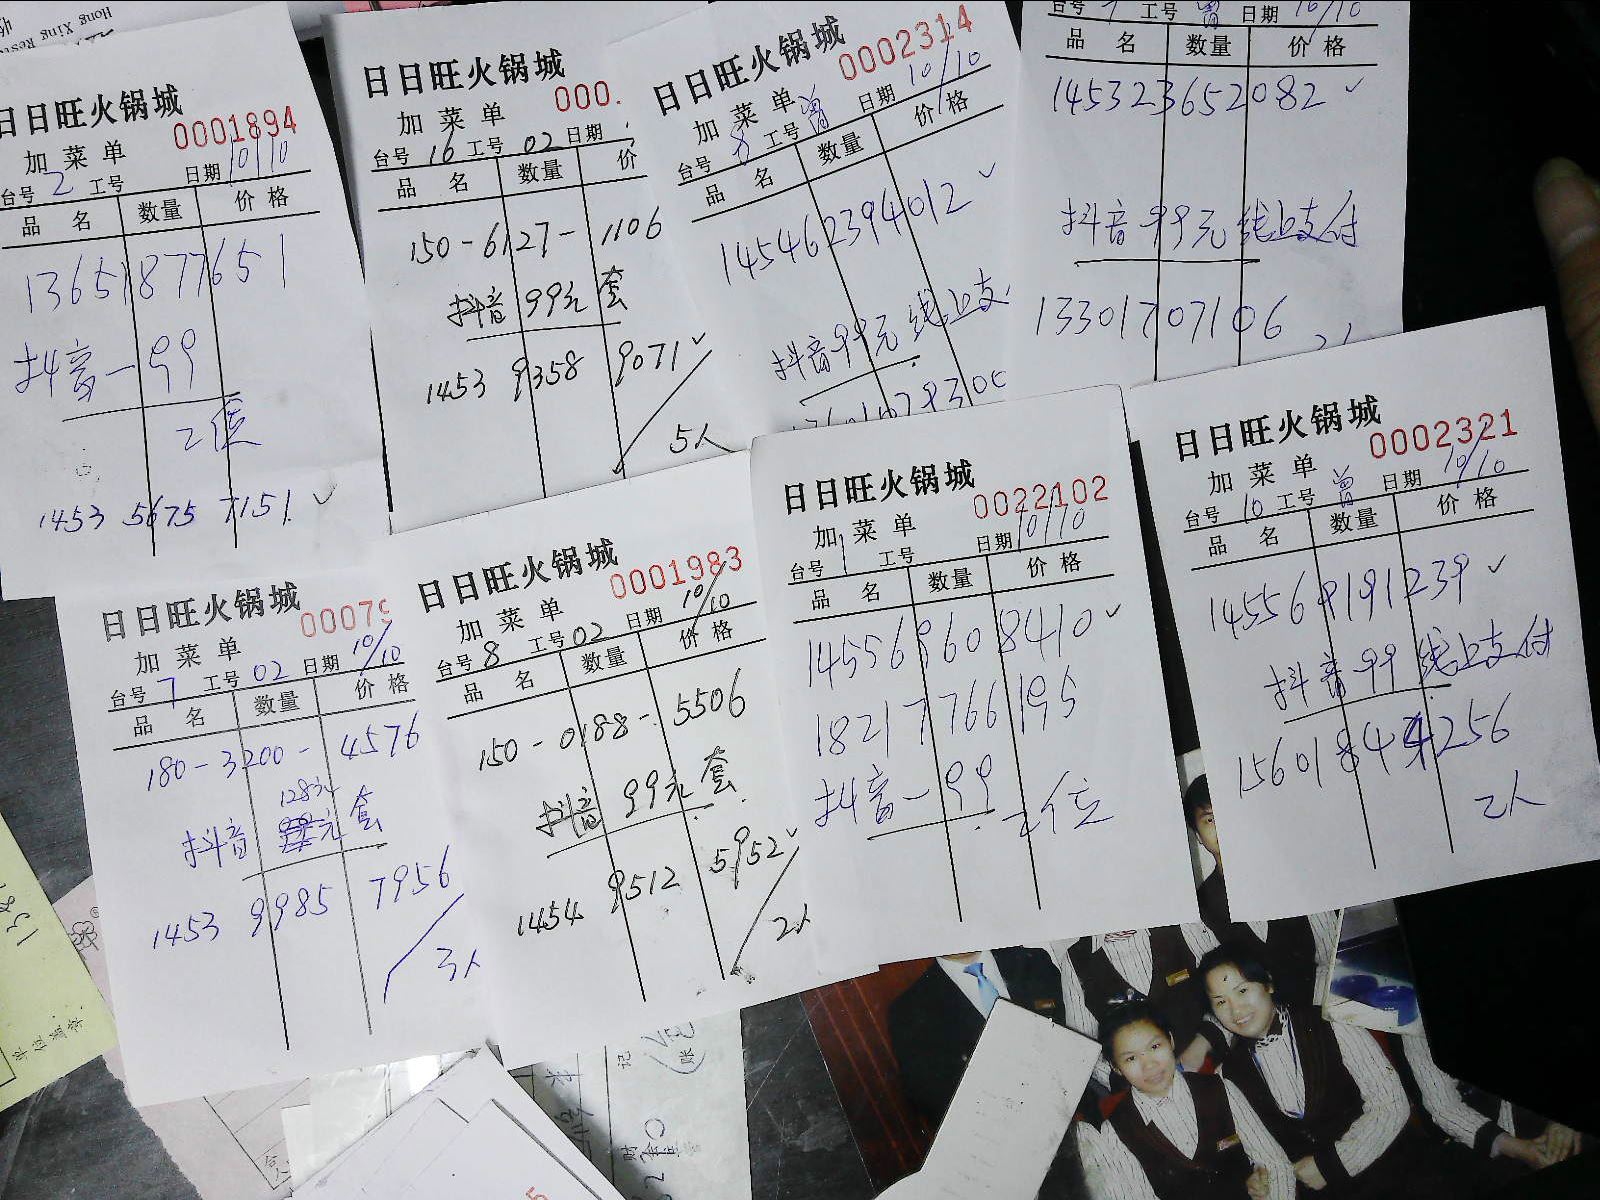 Hong Xing Rest
日日旺火锅城
0001894
加菜单
台号 2 工号 日期 10/10
品名 数量 价格
13651877651
抖音一99
2位
1453 5675 7151
日日旺火锅城
000
加菜单
台号 16 工号 02 日期
品名 数量 价
150-6127-1106
抖音 99元 套
1453 9358 9071
5人
日日旺火锅城
0002314
加菜单
台号 8 工号 曾 日期 10/10
品名 数量 价格
145462394012
抖音99元 线上支
台号 工号 曾 日期 10/10
品名 数量 价格
145323652082
抖音99元 线上支付
13301707106
日日旺火锅城
00079
加菜单
台号 7 工号 02 日期 10/10
品名 数量 价格
180-3200-4576
128元
抖音 元 套
1453 9985 7956
3人
日日旺火锅城
0001983
加菜单
台号 8 工号 02 日期 10/10
品名 数量 价格
150-0188-5506
抖音 99元 套
1454 9512 5952
2人
日日旺火锅城
0022102
加菜单
台号 1 工号 日期 10/10
品名 数量 价格
145569608410
18217766195
抖音一99
二位
日日旺火锅城
0002321
加菜单
台号 10 工号 曾 日期 10/10
品名 数量 价格
145569191239
抖音99线上支付
15601844256
2人